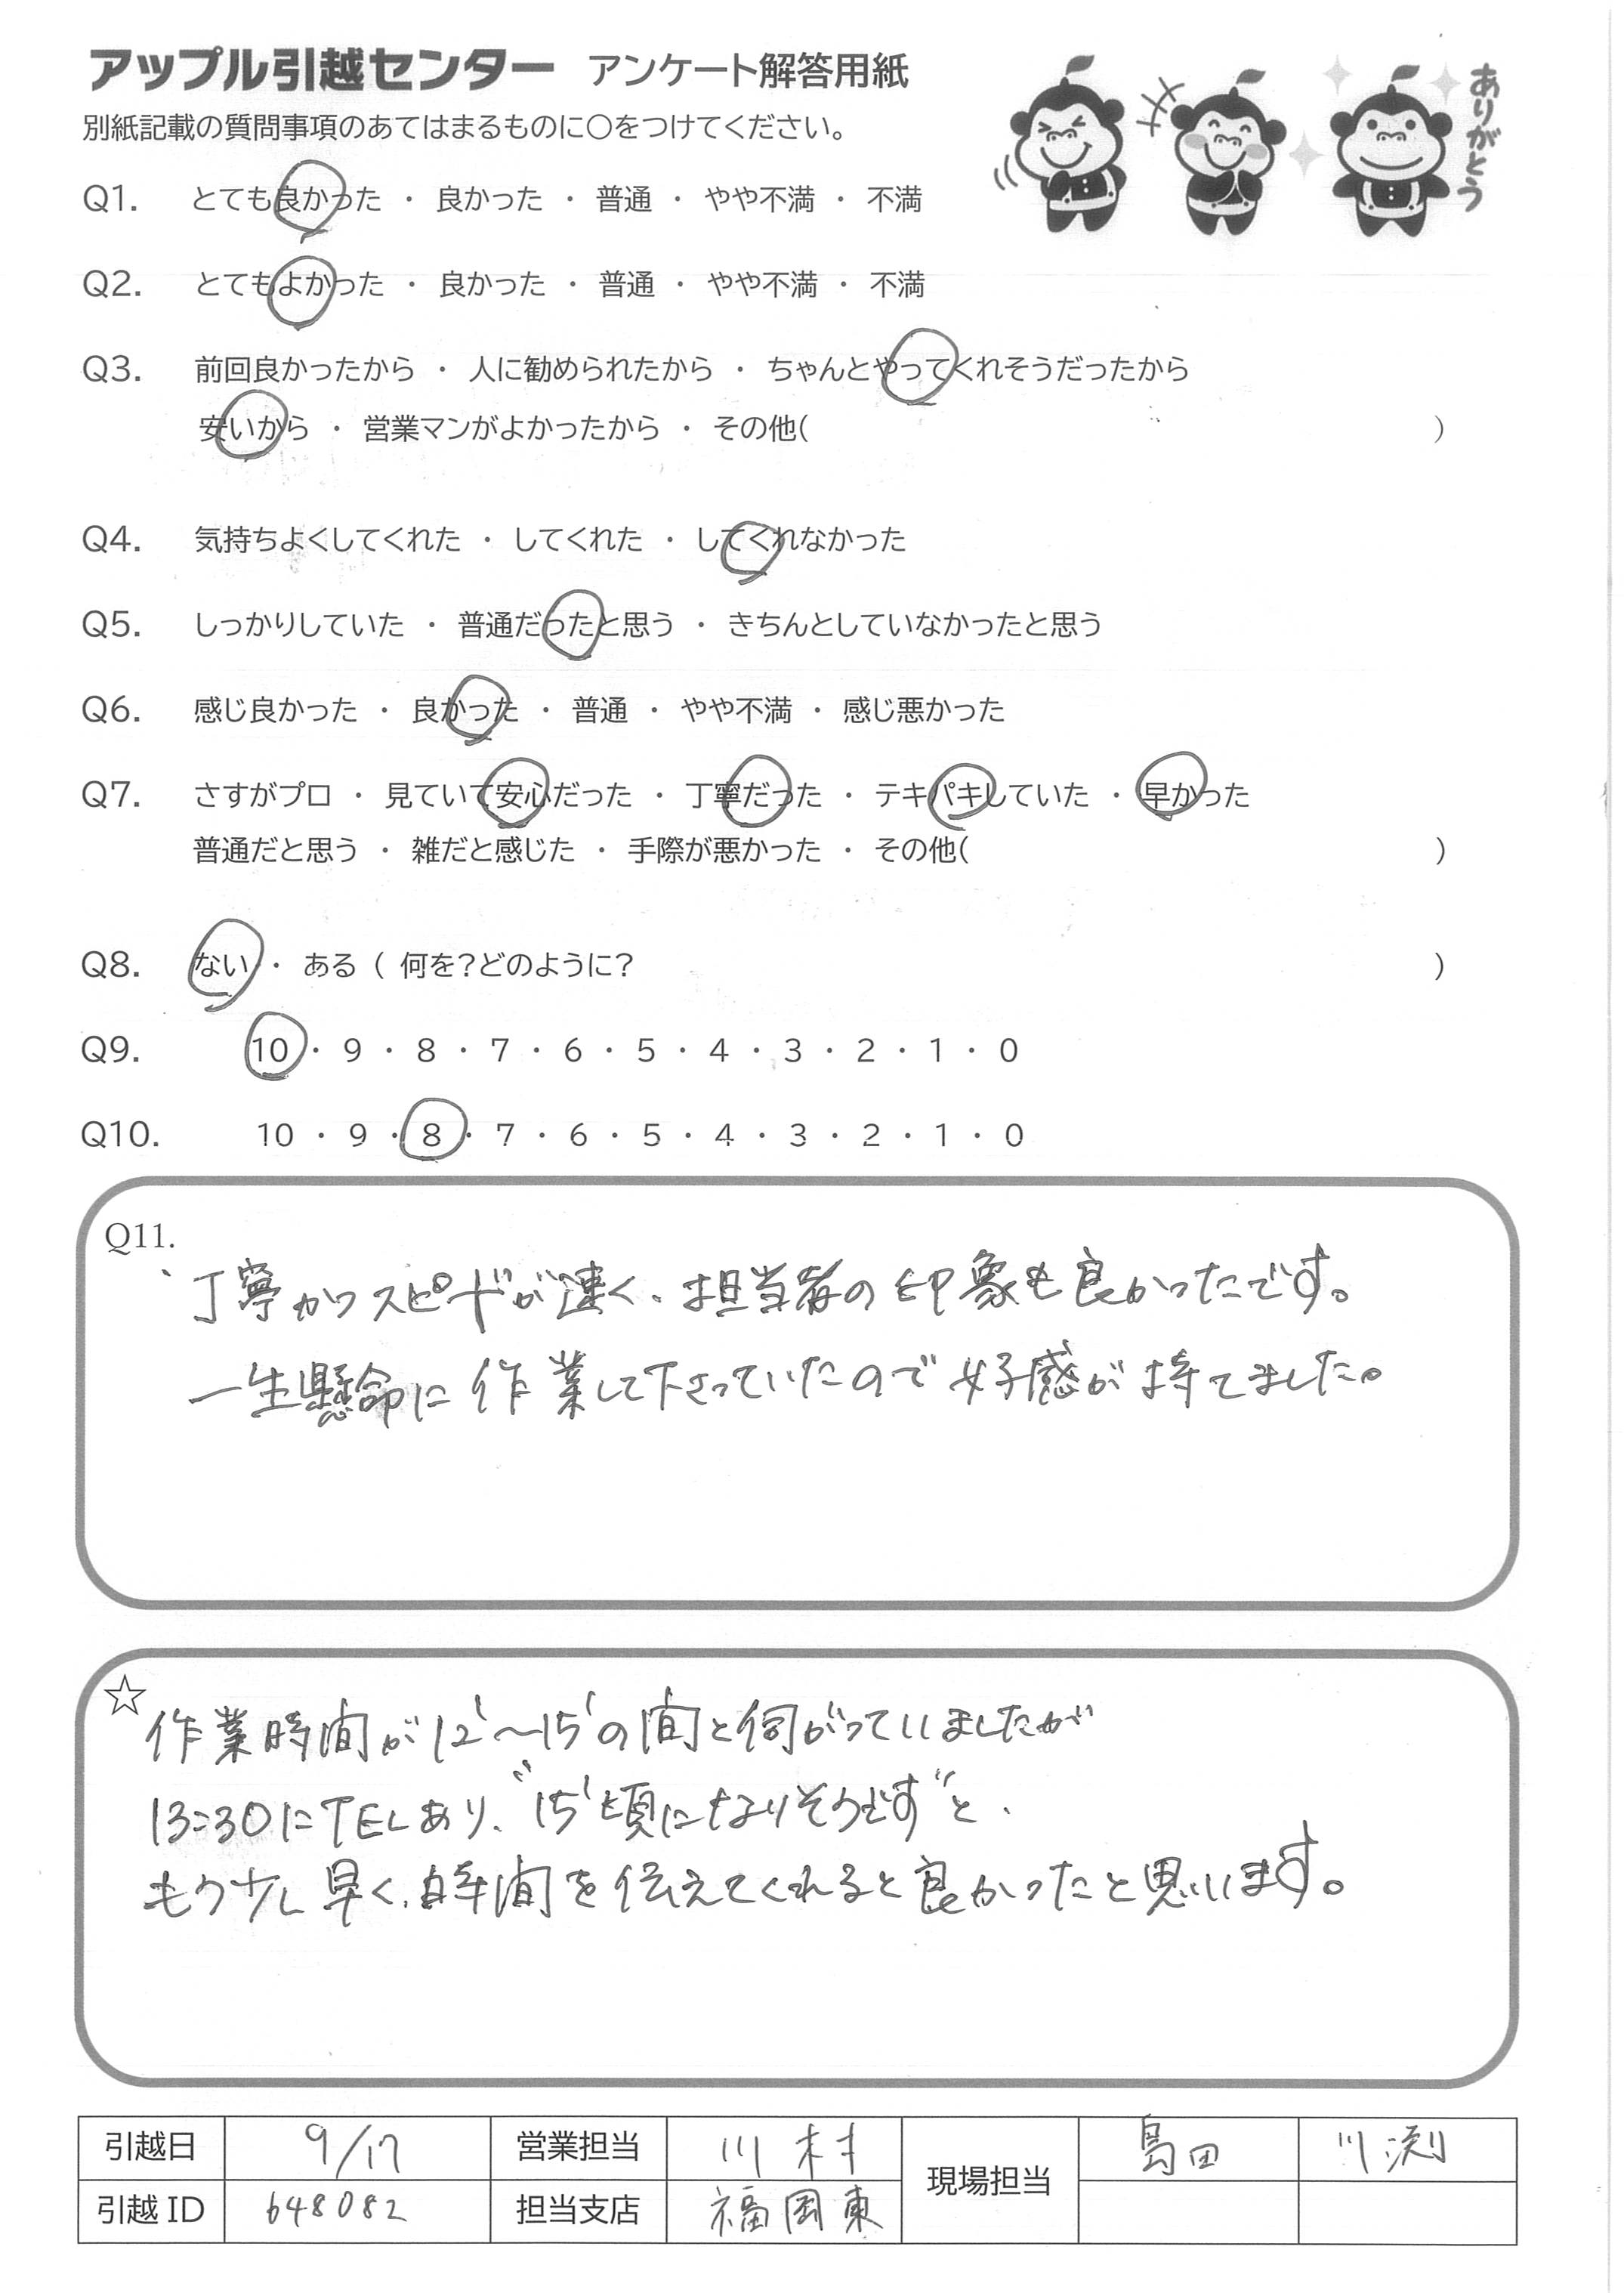 アップル引越センター アンケート解答用紙
別紙記載の質問事項のあてはまるものに○をつけてください。
ありがとう
Q1. とても良かった ・ 良かった ・ 普通 ・ やや不満 ・ 不満
Q2. とてもよかった ・ 良かった ・ 普通 ・ やや不満 ・ 不満
Q3. 前回良かったから ・ 人に勧められたから ・ ちゃんとやってくれそうだったから
安いから ・ 営業マンがよかったから ・ その他( )
Q4. 気持ちよくしてくれた ・ してくれた ・ してくれなかった
Q5. しっかりしていた ・ 普通だったと思う ・ きちんとしていなかったと思う
Q6. 感じ良かった ・ 良かった ・ 普通 ・ やや不満 ・ 感じ悪かった
Q7. さすがプロ ・ 見ていて安心だった ・ 丁寧だった ・ テキパキしていた ・ 早かった
普通だと思う ・ 雑だと感じた ・ 手際が悪かった ・ その他( )
Q8. ない ・ ある ( 何を?どのように? )
Q9. 10 ・ 9 ・ 8 ・ 7 ・ 6 ・ 5 ・ 4 ・ 3 ・ 2 ・ 1 ・ 0
Q10. 10 ・ 9 ・ 8 ・ 7 ・ 6 ・ 5 ・ 4 ・ 3 ・ 2 ・ 1 ・ 0
Q11.
丁寧かつスピードが速く、担当者の印象も良かったです。
一生懸命に作業して下さっていたので好感が持てました。
☆
作業時間が12'〜15'の間と伺がっていましたが
13:30にTELあり、"15'頃になりそうです"と、
もう少し早く、時間を伝えてくれると良かったと思います。
引越日 9/17 営業担当 川村 現場担当 島田 川渕
引越ID 648082 担当支店 福岡東